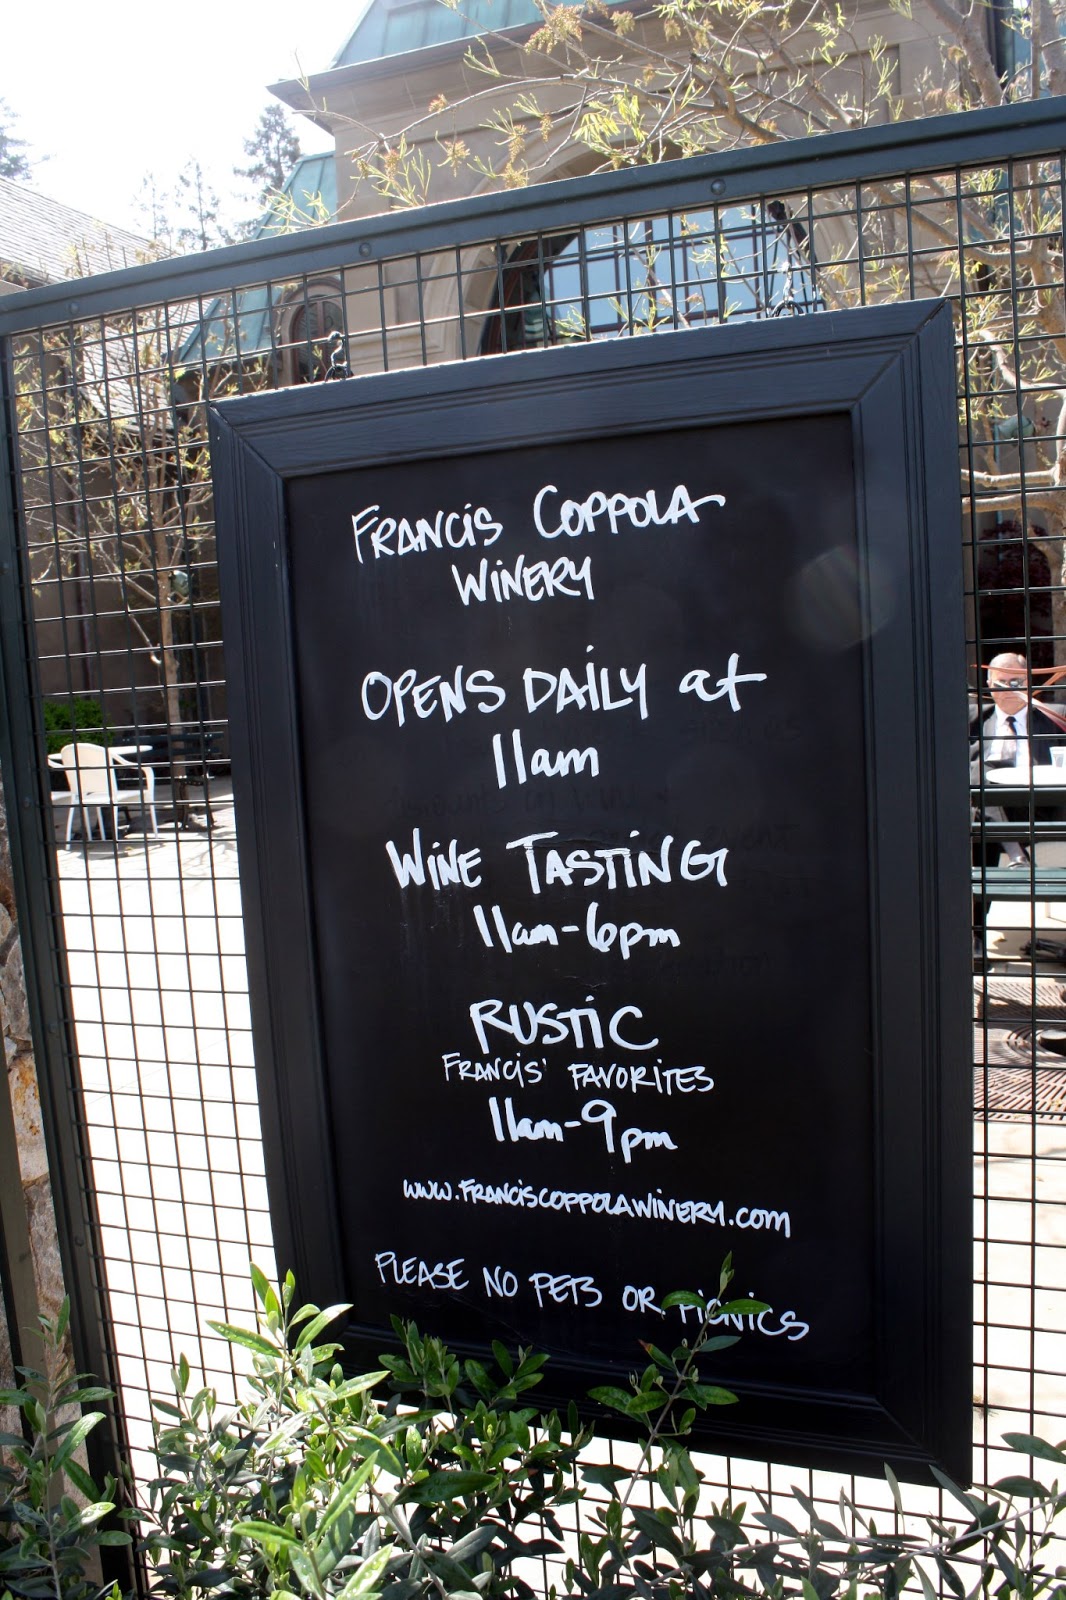 FRANCIS COPPOLA
WINERY
OPENS DAILY at
11am
WINE TASTING
11am-6pm
RUSTIC
FRANCIS' FAVORITES
11am-9pm
www.FRANCISCOPPOLAWINERY.com
PLEASE NO PETS OR PICNICS